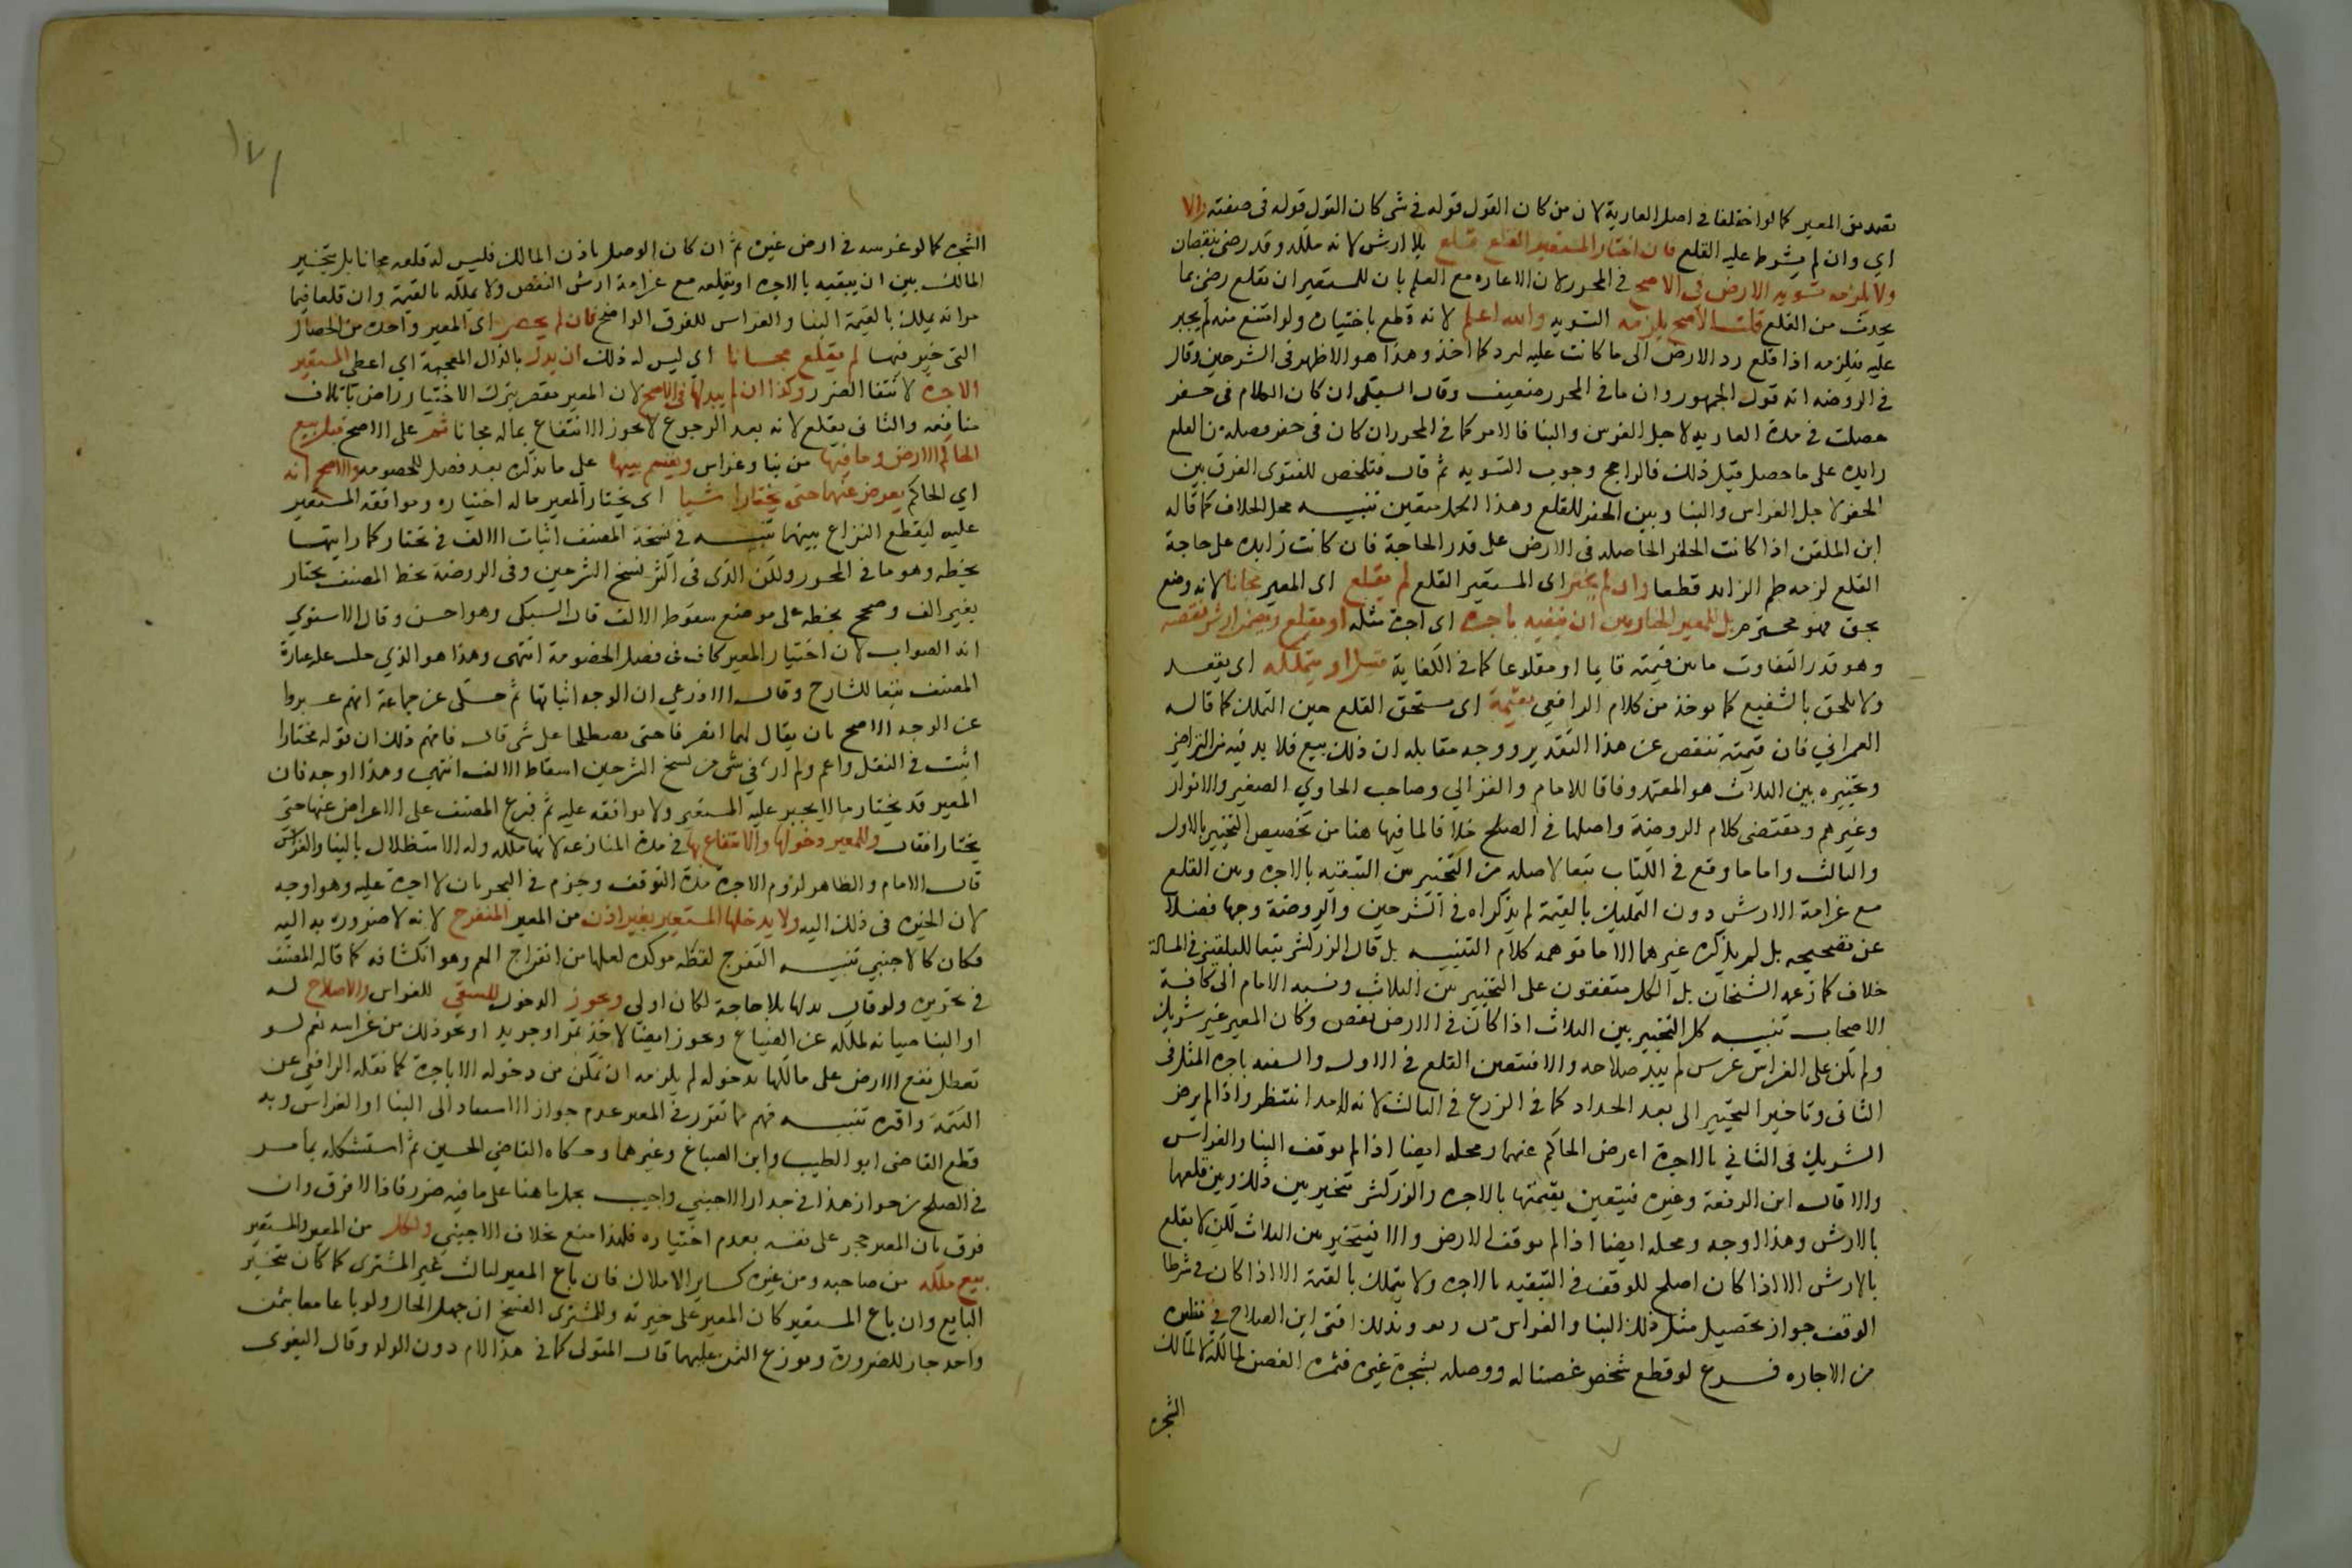 تصديق المعير كما لو اختلفا في اصل العارية لان من كان القول قوله في شى كان القول قوله في صفته والا
اي وان لم يشرط عليه القلع فان اختار المستعير القلع قلع بلا ارش لانه ملكه وقد رضى بنقصان
ولا يلزمه تسوية الارض في الاصح في المحرر لان الاعاره مع العلم بان للمستعير ان يقلع رضى بما
يحدث من القلع قلت الاصح يلزمه التسويه والله اعلم لانه قطع باختياره ولو امتنع منه لم يجبر
عليه فيلزمه اذا قلع رد الارض الى ما كانت عليه ليرد كما اخذ وهذا هو الاظهر في الشرحين وقال
في الروضه انه قول الجمهور وان ما في المحرر ضعيف وقال السبكى ان كان الكلام في حفر
حصلت في مدة العاريه لاجل الغرس والبنا فالامر كما في المحرر ان كان في حفر حصلت من القلع
زايده على ما حصل قبل ذلك فالراجح وجوب التسويه ثم قال فتلخص للفتوى الفرق بين
الحفر لاجل الغراس والبنا وبين الحفر للقلع وهذا الحمل متعين تنبيه محل الخلاف كما قاله
ابن الملقن اذا كانت الحفر الحاصله في الارض على قدر الحاجة فان كانت زايده على حاجة
القلع لزمه طم الزايد قطعا وان لم يختر اى المستعير القلع لم يقلع اى المعير مجانا لانه وضع
بحق فهو محترم بل للمعير الخيار بين ان يبقيه باجره اى اجرة مثله او يقلع ويضمن ارش نقصه
وهو قدر التفاوت ما بين قيمته قايما او مقلوعا كما في الكفاية قيل او يتملكه اى بعقد
ولا يلحق بالشفيع كما يوخذ من كلام الرافعى بقيمة اى مستحق القلع حين التملك كما قاله
العمراني فان قيمته تنقص عن هذا التقدير ووجه مقابله ان ذلك بيع فلا بد فيه من التراضي
وتخييره بين الثلاث هو المعتمد وفاقا للامام والغزالي وصاحب الحاوي الصغير والانوار
وغيرهم ومقتضى كلام الروضة واصلها في الصلح خلافا لما فيها هنا من تخصيص التخيير بالاول
والثالث واما ما وقع في الكتاب تبعا لاصله من التخيير بين التبقيه بالاجره وبين القلع
مع غرامة الارش دون التمليك بالقيمة لم يذكراه في الشرحين والروضة وجها فضلا
عن تصحيحه بل لم يذكره غيرهما الا ما توهمه كلام التنبيه بل قال الزركشي تبعا للبلقينى في المسالة
خلاف كما زعمه الشيخان بل الكل متفقون على التخيير بين الثلاث ونسبه الامام الى كافة
الاصحاب تنبيه كل التخيير بين الثلاث اذا كان في الارض نقص وكان المعير غير شريك
ولم يكن على الغراس غرس لم يبد صلاحه والا فيتعين القلع في الاول والتبقيه باجره المثل في
الثانى وتاخير التخيير الى بعد الجداد كما في الزرع في الثالث لانه له امد انتظر واذا لم يرض
الشريك في الثاني بالاجرة اعرض الحاكم عنهما ومحله ايضا اذا لم يوقف البنا والغراس
والا قال ابن الرفعة وغيره فيتعين تبقيتها بالاجره والزركشى تخير بين ذلك وبين قلعها
بالارش وهذا اوجه ومحله ايضا اذا لم توقف الارض والا فيتخير بين الثلاث لكن لا يقلع
بالارش الا اذا كان اصلح للوقف في التبقيه بالاجره ولا يتملك بالقيمة الا اذا كان في شرط
الوقف جواز تحصيل مثل ذلك البنا والغراس من ريعه وبذلك افتى ابن الصلاح في نظيره
من الاجاره فرع لو قطع شخص غصنا له ووصله بشجرة غيره فثمرة الغصن لمالكه لا لمالك
الشجره
١٧١
الشجره كما لو غرسه في ارض غيره ثم ان كان الوصل باذن المالك فليس له قلعه مجانا بل يتخير
المالك بين ان يبقيه بالاجره او يقلعه مع غرامة ارش النقص ولا يملكه بالقيمة وان قلعا فيما
مر انه يملك بالقيمة البنا والغراس للفرق الواضح فان لم يختر اى المعير واحدة من الخصال
التى خير فيها لم يقلع مجانا اى ليس له ذلك ان بذل بالذال المعجمة اي اعطى المستعير
الاجرة لانتفا الضرر وكذا ان لم يبذلها في الاصح لان المعير مقصر بترك الاختيار راض باتلاف
منافعه والثانى يقلع لانه بعد الرجوع لا يجوز الانتفاع بماله مجانا ثم على الاصح قيل يبيع
الحاكم الارض وما فيها من بنا وغراس ويقسم بينهما على ما يذكره بعد فصل للخصومه والاصح انه
اي الحاكم يعرض عنهما حتى يختارا شيا اى يختار المعير ماله اختياره ويوافقه المستعير
عليه ليقطع النزاع بينهما تنبيه في نسخة المصنف اثبات الالف في يختار كما رايتها
بخطه وهو ما في المحرر ولكن الذى في اكثر نسخ الشرحين وفي الروضة بخط المصنف يختار
بغير الف وصحح بخطه على موضع سقوط الالف قال السبكى وهو احسن وقال الاسنوي
انه الصواب لان اختيار المعير كاف في فصل الخصومة انتهى وهذا هو الذي حل عليه عبارة
المصنف تبعا للشارح وقال الاذرعي ان الوجه اثباتها ثم حكى عن جماعة انهم عبروا
عن الوجه الاصح بان يقال لهما انصرفا حتى تصطلحا على شى قال فافهم ذلك ان قوله يختارا
اثبت في النقل واعم ولم ار في شى من نسخ الشرحين اسقاط الالف انتهى وهذا اوجه فان
المعير قد يختار ما لا يجبر عليه المستعير ولا يوافقه عليه ثم فرع المصنف على الاعراض عنها حتى
يختارا فقال وللمعير دخولها والانتفاع بها في مدة المنازعه لانها ملكه وله الاستظلال بالبنا والغراس
قال الامام والظاهر لزوم الاجرة مدة التوقف وجزم في البحر بان لا اجرة عليه وهو اوجه
لان الخيره في ذلك اليه ولا يدخلها المستعير بغير اذن من المعير المتفرج لانه لا ضرورة به اليه
فكان كالاجنبي تنبيه التفرج لفظه مولده لعلها من انفراج الهم وهو انكشافه كما قاله المصنف
في تحريره ولو قال بدلها بلا حاجة لكان اولى ويجوز الدخول للسقى للغراس والاصلاح له
او البنا صيانه لملكه عن الضياع ويجوز ايضا لاخذ ثمر او جريد او نحو ذلك من غراسه نعم لو
تعطل نفع الارض على مالكها بدخوله لم يلزمه ان تمكن من دخوله الا باجرة كما نقله الرافعي عن
التتمة واقره تنبيه فهم مما تقرر في المعير عدم جواز الاسناد الى البنا او الغراس وبه
قطع القاضى ابو الطيب وابن الصباغ وغيرهما وحكاه القاضي الحسين ثم استشكله بما مر
في الصلح من جواز هذا في جدار الاجنبي واجيب بحمل ما هنا على ما فيه ضرر فاذا لا فرق وان
فرق بان المعير حجر على نفسه بعدم اختياره فلهذا منع بخلاف الاجنبي ولكل من المعير والمستعير
بيع ملكه من صاحبه ومن غيره كساير الاملاك فان باع المعير لثالث تخير المشترى كما كان يتخير
البايع وان باع المستعير كان المعير على خيرته وللمشترى الفسخ ان جهل الحال ولو باعا معا بثمن
واحد جاز للضرورة ويوزع الثمن عليهما قال المتولى كما في هذا الام دون الولد وقال البغوى